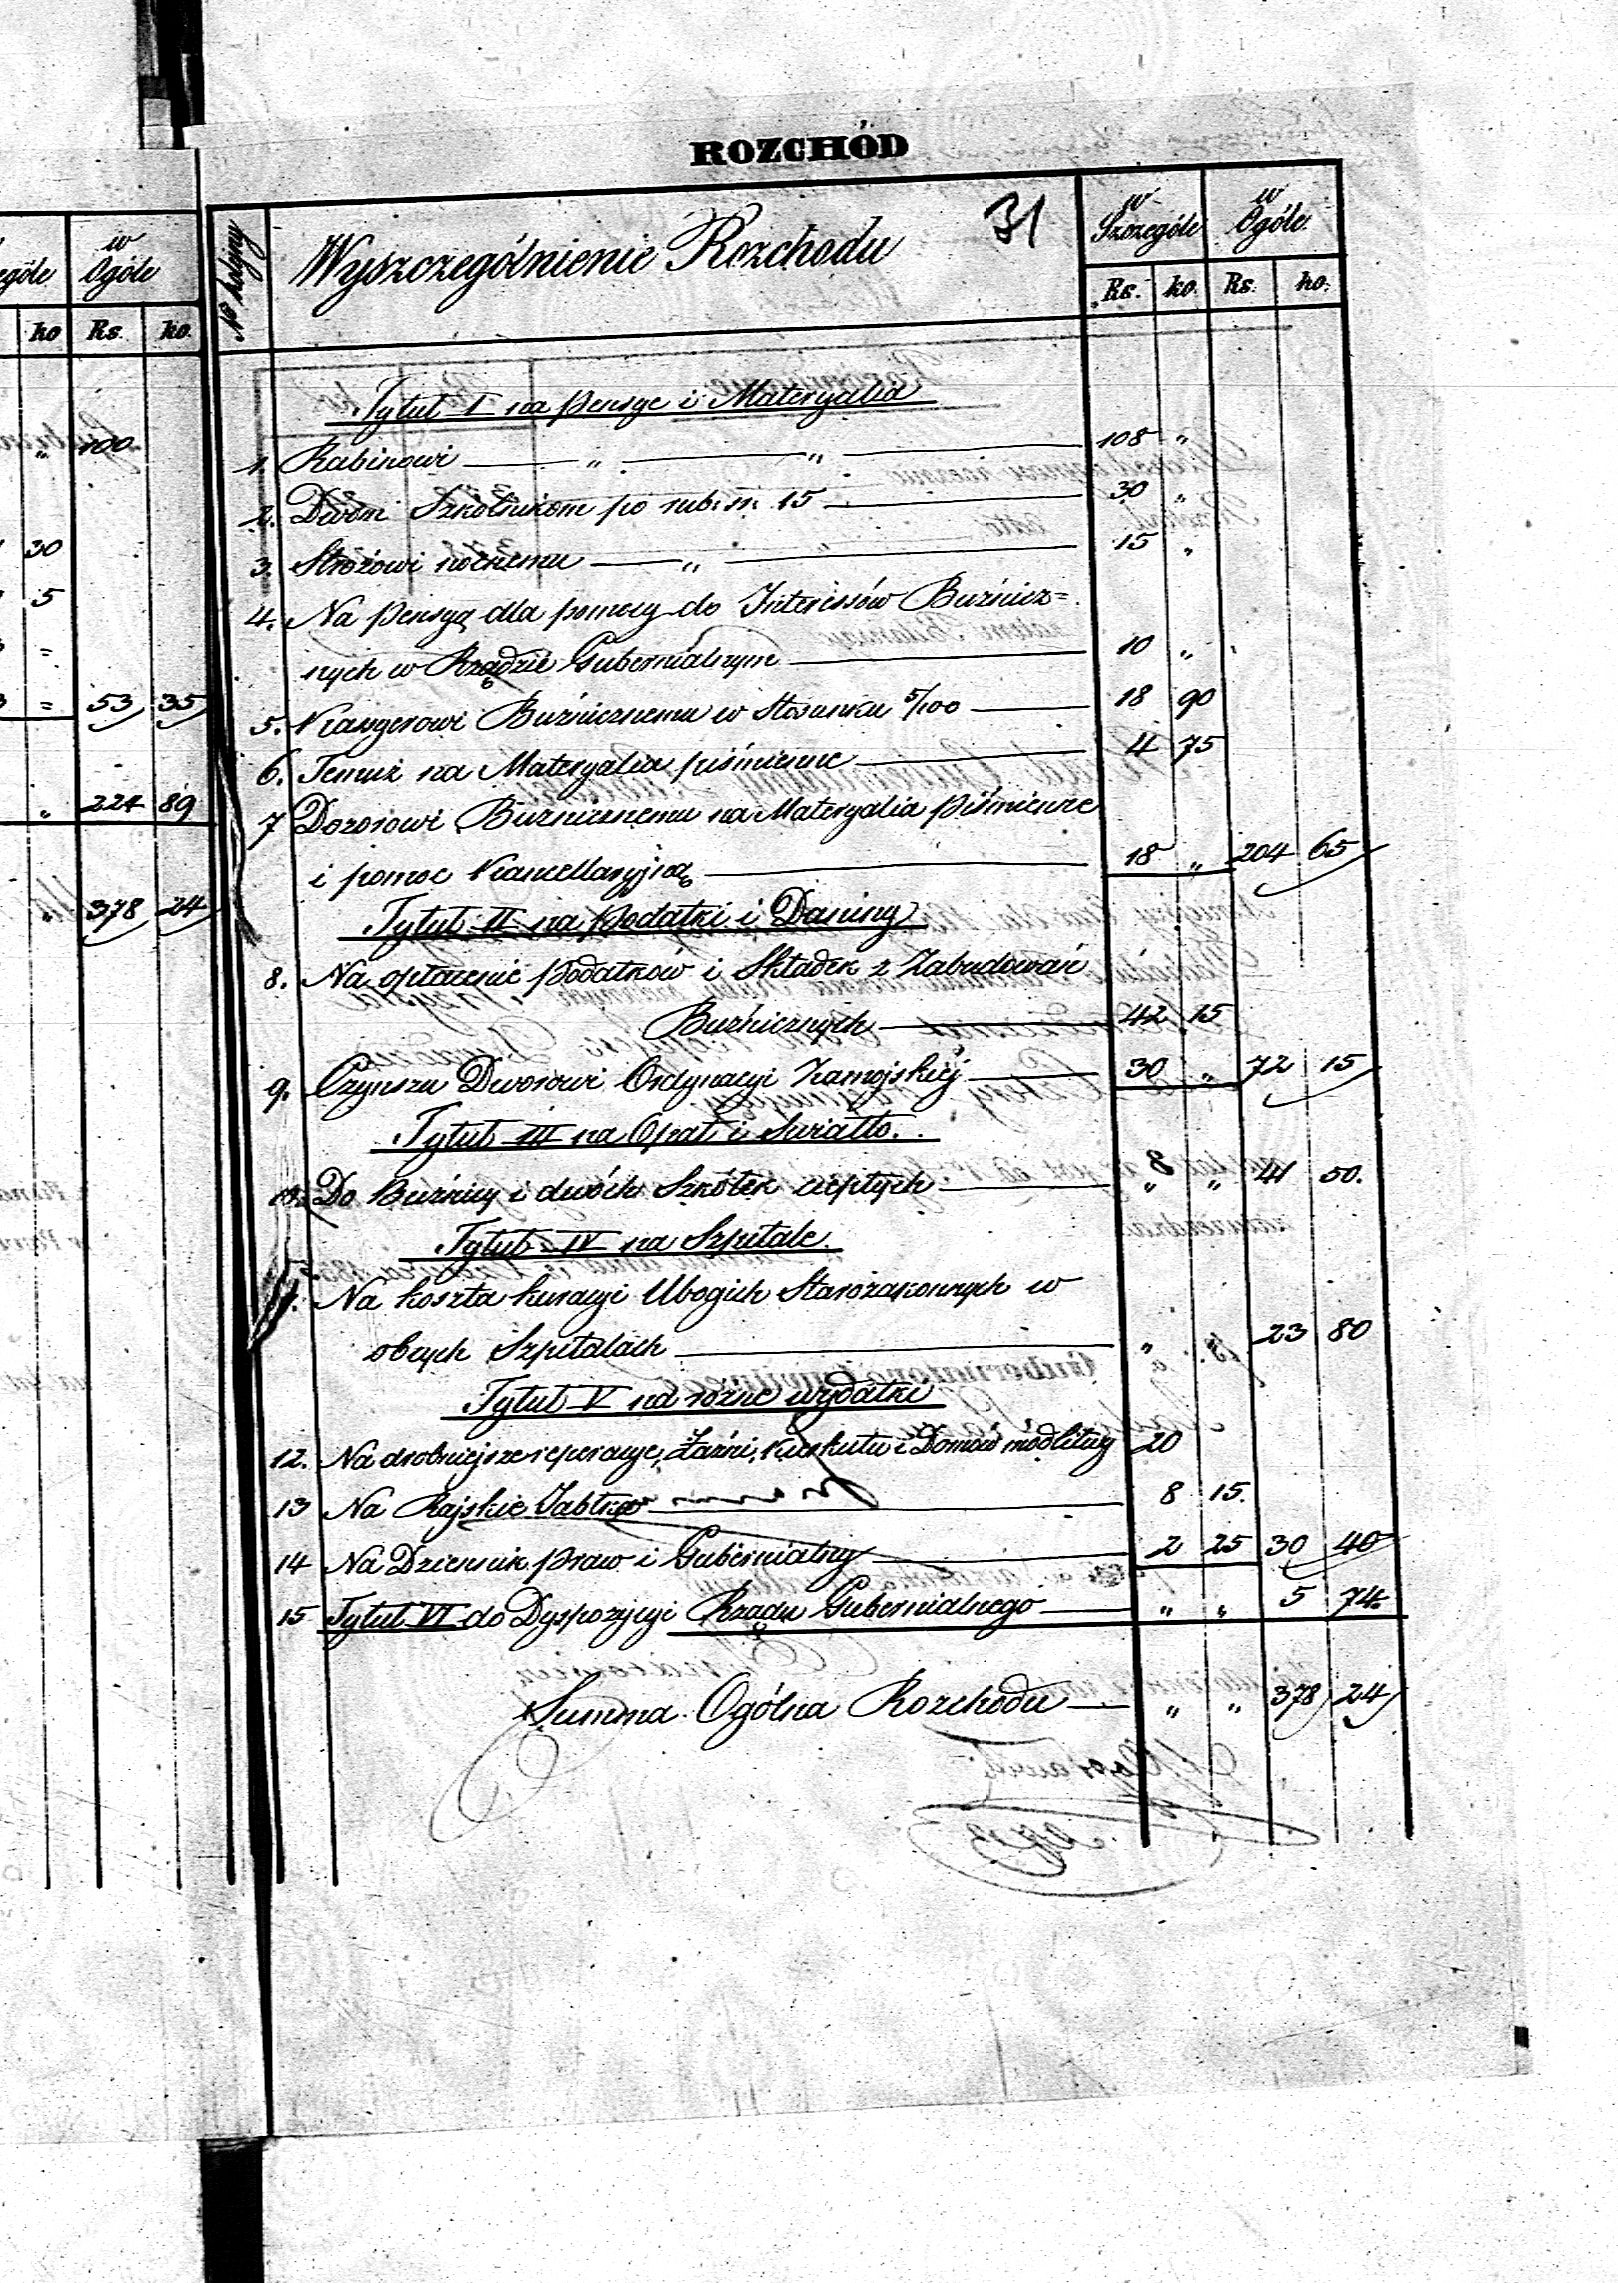 w
Ogóle
ko. Rs. ko.
„ 100
30
5
=
= 53 35
„ 224 89
„ 378 24
ROZCHÓD
31
№ kolejny
Wyszczególnienie Rozchodu
w Szczególe
w Ogóle
Rs. ko. Rs. ko.
Tytuł I na pensye i Materyalia
1. Rabinowi „ „ 108 „
2. Dwóm Szkólnikom po rub. sr. 15 30 „
3. Stróżowi nocnemu „ 15 „
4. Na pensyą dla pomocy do Interessów Bużnicz=
nych w Rządzie Gubernialnym 10 „
5. Kassyerowi Bużnicznemu w Stosunku 5/100 18 90
6. Temuż na Materyalia piśmienne 4 75
7 Dozorowi Bużnicznemu na Materyalia piśmienne
i pomoc Kancellaryjną 18 „ 204 65
Tytuł II na podatki i Daniny
8. Na opłacenie podatków i Składek z Zabudowań
Bużnicznych 42 15
9. Czynszu Dworowi Ordynacyi Zamojskiéj 30 „ 72 15
Tytuł III na Opał i Swiatło.
10. Do Bużnicy i dwóch Szkółek ciepłych „ „ 41 50.
Tytuł IV na Szpitale.
Na koszta kuracyi Ubogich Starozakonnych w
obcych Szpitalach „ „ 23 80
Tytuł V na rożne wydatki
12. Na drobniejsze reperacye, Łaźni, Kirkutu i Domów modlitwy 20
13 Na Rajskie Jabłko 8 15.
14 Na Dziennik praw i Gubernialny 2 25 30 40
15 Tytuł VI do Dyspozycyi Rządu Gubernialnego „ „ 5 74.
Summa Ogólna Rozchodu „ „ 378 24